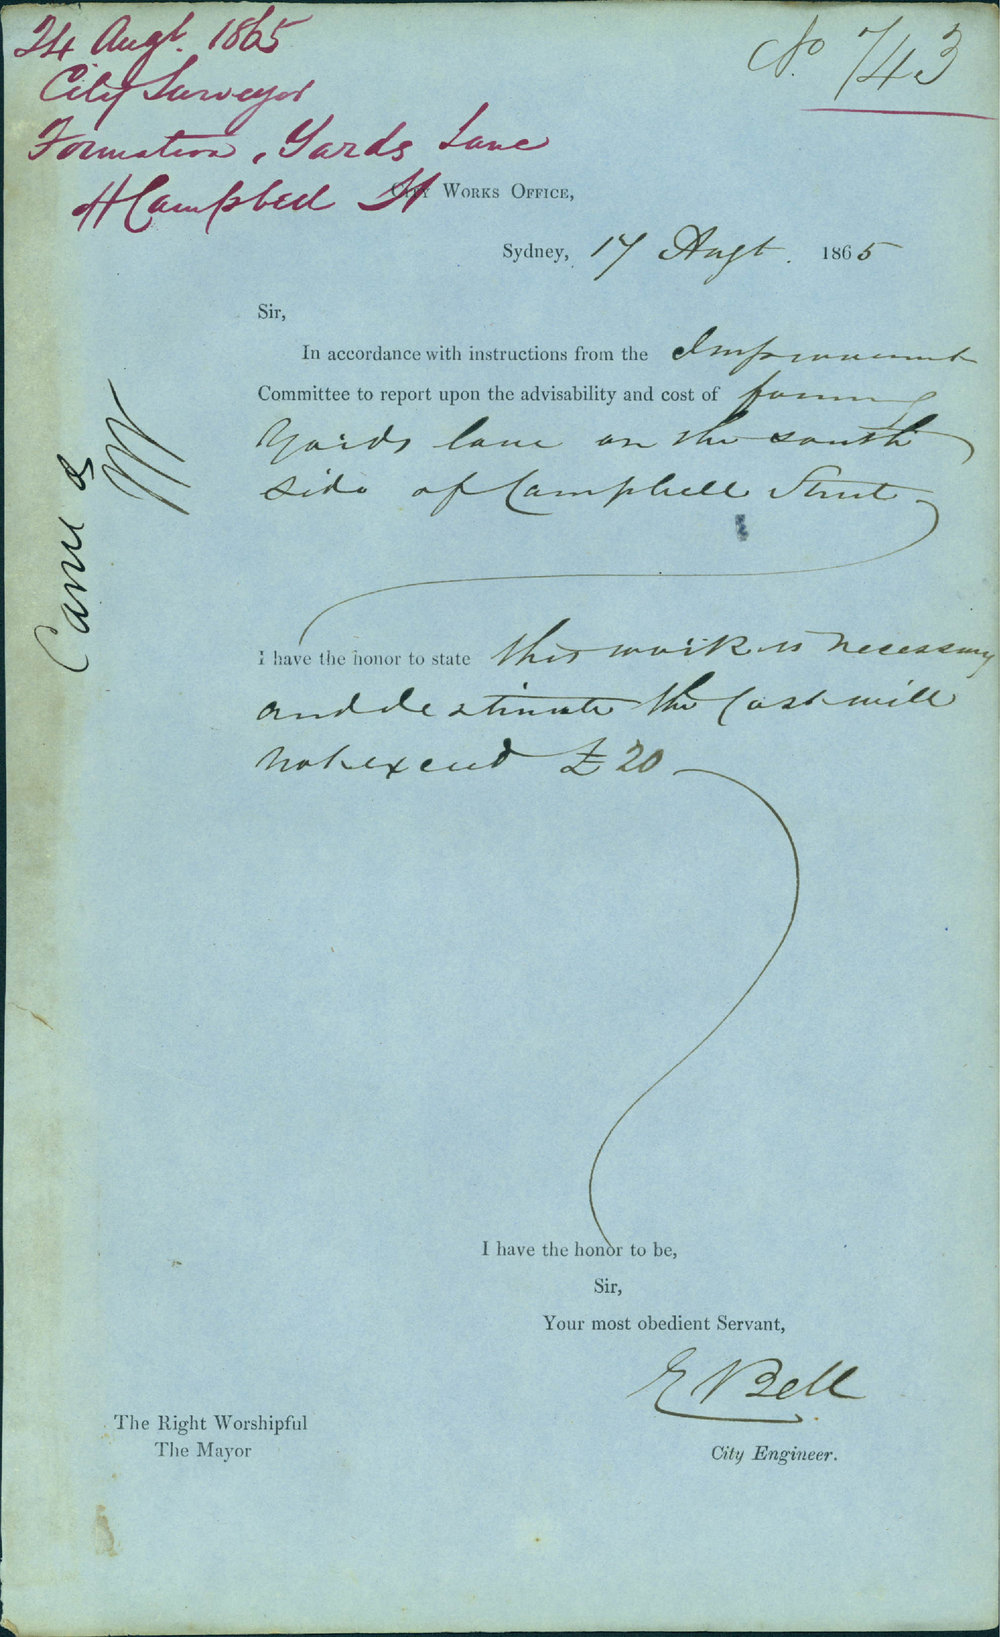 24 Augt. 1865
City Surveyor
Formation, Yards Lane
Campbell St
No. 743
City Works Office,
Sydney, 17 Augt. 1865
Sir,
In accordance with instructions from the Improvement
Committee to report upon the advisability and cost of forming
Yards lane on the south
side of Campbell Street
I have the honor to state this work is necessary
and estimate the Cost will
not exceed £20
I have the honor to be,
Sir,
Your most obedient Servant,
E Bell
City Engineer.
The Right Worshipful
The Mayor